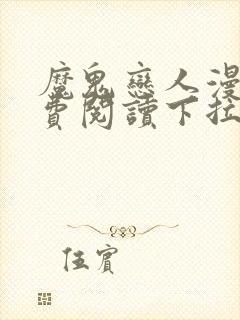 魔鬼戀人漫
費閱讀下拉
伍賓